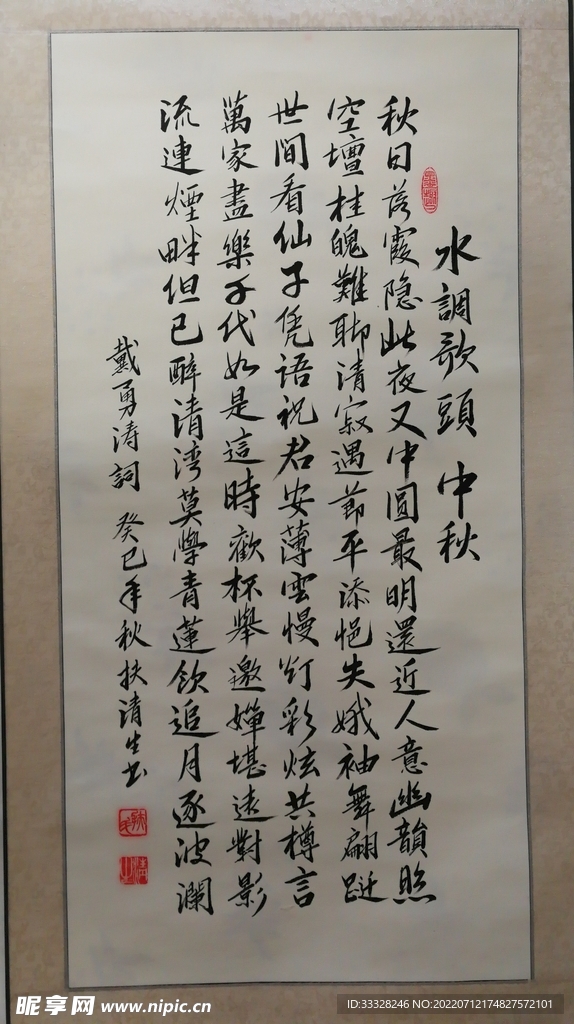 水調歌頭 中秋
秋日落霞隐此夜又中圆最明還近人意幽韻照
空壇桂魄難聊清寂遇節平添悒失娥袖舞翩跹
世间看仙子凭语祝君安薄雲慢灯彩炫共樽言
萬家盡樂千代如是這時歡杯舉邀嬋堪遠對影
流連煙畔但已醉清湾莫學青蓮飲追月逐波澜
戴勇涛詞 癸巳年秋扶清生书
昵享网 www.nipic.cn
ID:33328246 NO:20220712174827572101